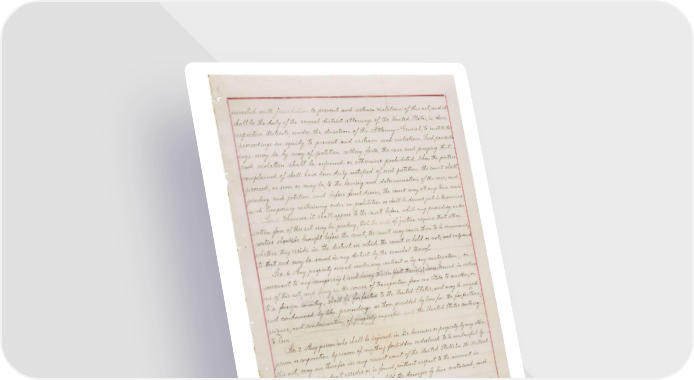 invested with jurisdiction to prevent and restrain violations of this act; and it
shall be the duty of the several district attorneys of the United States, in their
respective districts, under the direction of the Attorney-General, to institute
proceedings in equity to prevent and restrain such violations. Such proceed
ings may be by way of petition setting forth the case and praying that
such violation shall be enjoined or otherwise prohibited. When the parties
complained of shall have been duly notified of such petition the court shall
proceed, as soon as may be, to the hearing and determination of the case; and
pending such petition and before final decree, the court may at any time make
such temporary restraining order or prohibition as shall be deemed just in the premises.
Whenever it shall appear to the court before which any proceeding under
section four of this act may be pending, that the ends of justice require that other
parties should be brought before the court, the court may cause them to be summoned,
whether they reside in the district in which the court is held or not; and subpoenas
to that end may be served in any district by the marshal thereof.
Sec. 6. Any property owned under any contract or by any combination, or
pursuant to any conspiracy (and being the subject thereof) mentioned in section
one of this act, and being in the course of transportation from one State to another, or
to a foreign country, shall be forfeited to the United States, and may be seized
and condemned by like proceedings as those provided by law for the forfeiture,
seizure, and condemnation of property imported into the United States contrary
to law.
Sec. 7. Any person who shall be injured in his business or property by any other
person or corporation by reason of anything forbidden or declared to be unlawful by
this act, may sue therefor in any circuit court of the United States in the district
resides or is found, without respect to the amount in
the damages by him sustained, and